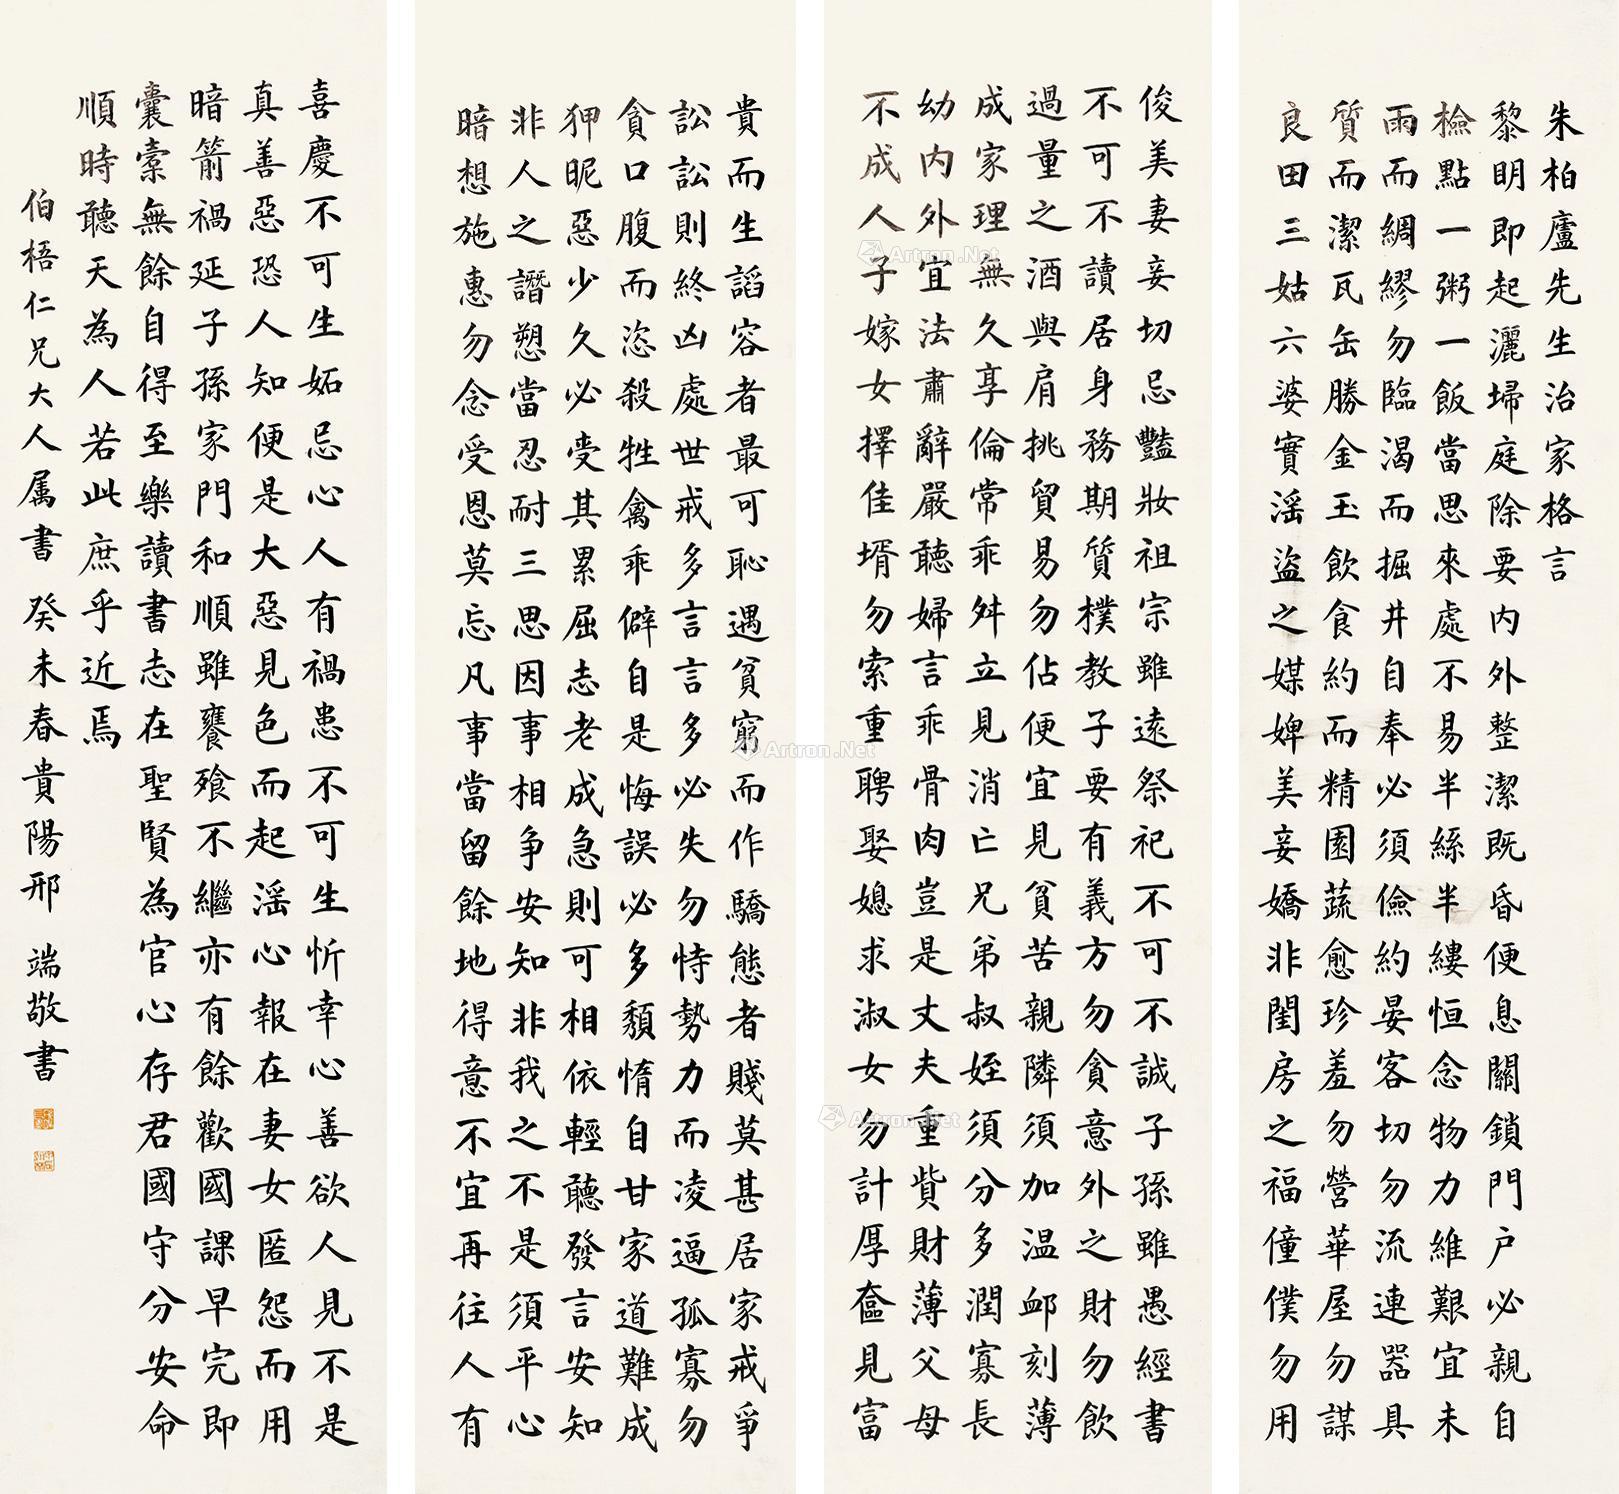 朱柏廬先生治家格言
黎明即起灑埽庭除要内外整潔既昏便息關鎖門户必親自
檢點一粥一飯當思來處不易半絲半縷恒念物力維艱宜未
雨而綢繆勿臨渴而掘井自奉必須儉約晏客切勿流連器具
質而潔瓦缶勝金玉飲食約而精園蔬愈珍羞勿營華屋勿謀
良田三姑六婆實滛盗之媒婢美妾嬌非閨房之福僮僕勿用
俊美妻妾切忌豔妝祖宗雖遠祭祀不可不誠子孫雖愚經書
不可不讀居身務期質樸教子要有義方勿貪意外之財勿飲
過量之酒與肩挑貿易勿佔便宜見貧苦親隣須加温卹刻薄
成家理無久享倫常乖舛立見消亡兄弟叔姪須分多潤寡長
幼内外宜法肅辭嚴聽婦言乖骨肉豈是丈夫重貲財薄父母
不成人子嫁女擇佳壻勿索重聘娶媳求淑女勿計厚奩見富
貴而生謟容者最可恥遇貧窮而作驕態者賤莫甚居家戒爭
訟訟則終凶處世戒多言言多必失勿恃勢力而凌逼孤寡勿
貪口腹而恣殺牲禽乖僻自是悔誤必多頽惰自甘家道難成
狎昵惡少久必受其累屈志老成急則可相依輕聽發言安知
非人之譖愬當忍耐三思因事相争安知非我之不是須平心
暗想施惠勿念受恩莫忘凡事當留餘地得意不宜再往人有
喜慶不可生妬忌心人有禍患不可生忻幸心善欲人見不是
真善惡恐人知便是大惡見色而起滛心報在妻女匿怨而用
暗箭禍延子孫家門和順雖饔飱不繼亦有餘歡國課早完即
囊橐無餘自得至樂讀書志在聖賢為官心存君國守分安命
順時聽天為人若此庶乎近焉
伯梧仁兄大人属書 癸未春貴陽邢 端敬書
Artron.Net
Artron.Net
Artron.Net